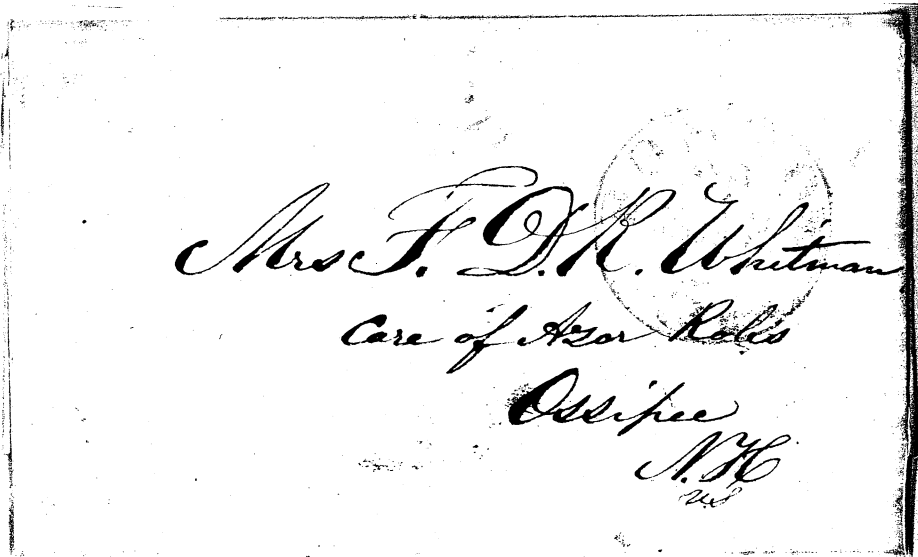 Mrs F. D. R. Whitman
Care of Azor Robis
Ossipee
N.H
U.S